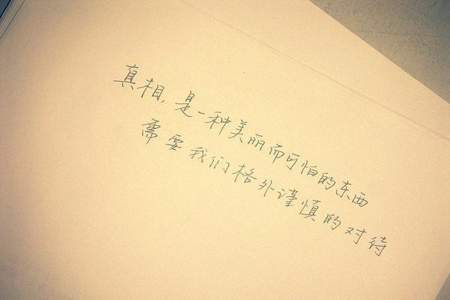 真相，是一种美丽而可怕的东西
需要我们格外谨慎的对待